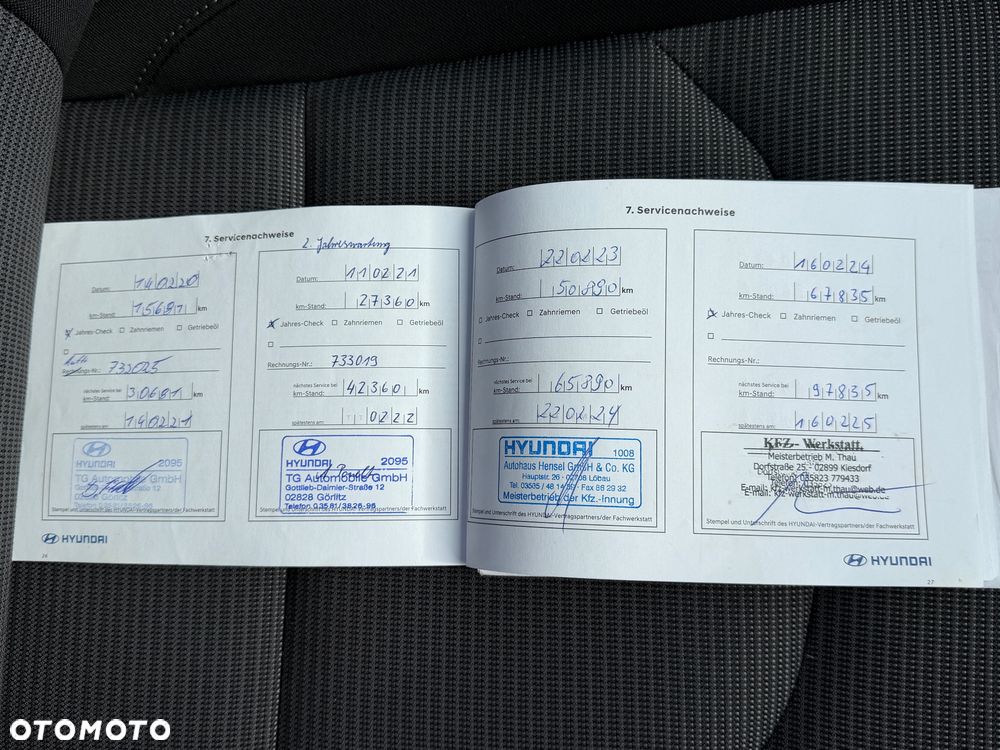 7. Servicenachweise
Datum: 140220
km-Stand: 15681 km
Jahres-Check Zahnriemen Getriebeöl
Rechnungs-Nr.: 733025
nächstes Service bei
km-Stand: 30681 km
spätestens am: 140221
2095
HYUNDAI
TG Automobile GmbH
Gottlieb-Daimler-Straße 12
02828 Görlitz
Stempel und Unterschrift des HYUNDAI-Vertragspartners/der Fachwerkstatt
HYUNDAI
26
2. Jahreswartung
Datum: 110221
km-Stand: 27360 km
Jahres-Check Zahnriemen Getriebeöl
Rechnungs-Nr.: 733019
nächstes Service bei
km-Stand: 42360 km
spätestens am: TT0222
HYUNDAI 2095
TG Automobile GmbH
Gottlieb-Daimler-Straße 12
02828 Görlitz
Telefon 03581/3826-96
Stempel und Unterschrift des HYUNDAI-Vertragspartners/der Fachwerkstatt
7. Servicenachweise
Datum: 220223
km-Stand: 50890 km
Jahres-Check Zahnriemen Getriebeöl
Rechnungs-Nr.:
nächstes Service bei
km-Stand: 65890 km
spätestens am: 220224
HYUNDAI 1008
Autohaus Hensel GmbH & Co. KG
Hauptstr. 26 - 02708 Löbau
Tel. 03585 / 48 14 35 - Fax 86 29 32
Meisterbetrieb der Kfz.-Innung
Stempel und Unterschrift des HYUNDAI-Vertragspartners/der Fachwerkstatt
Datum: 160224
km-Stand: 67835 km
Jahres-Check Zahnriemen Getriebeöl
Rechnungs-Nr.:
nächstes Service bei
km-Stand: 97835 km
spätestens am: 160225
KFZ- Werkstatt.
Meisterbetrieb M. Thau
Dorfstraße 25 - 02899 Kiesdorf
Telefon: 035823 779433
E-mail: kfz-werkstatt-m.thau@web.de
Stempel und Unterschrift des HYUNDAI-Vertragspartners/der Fachwerkstatt
HYUNDAI
27
OTOMOTO